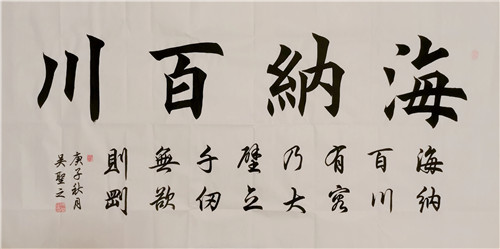 海納百川
海納
百川
有容
乃大
壁立
千仞
無欲
則剛
庚子秋月
吳聖之